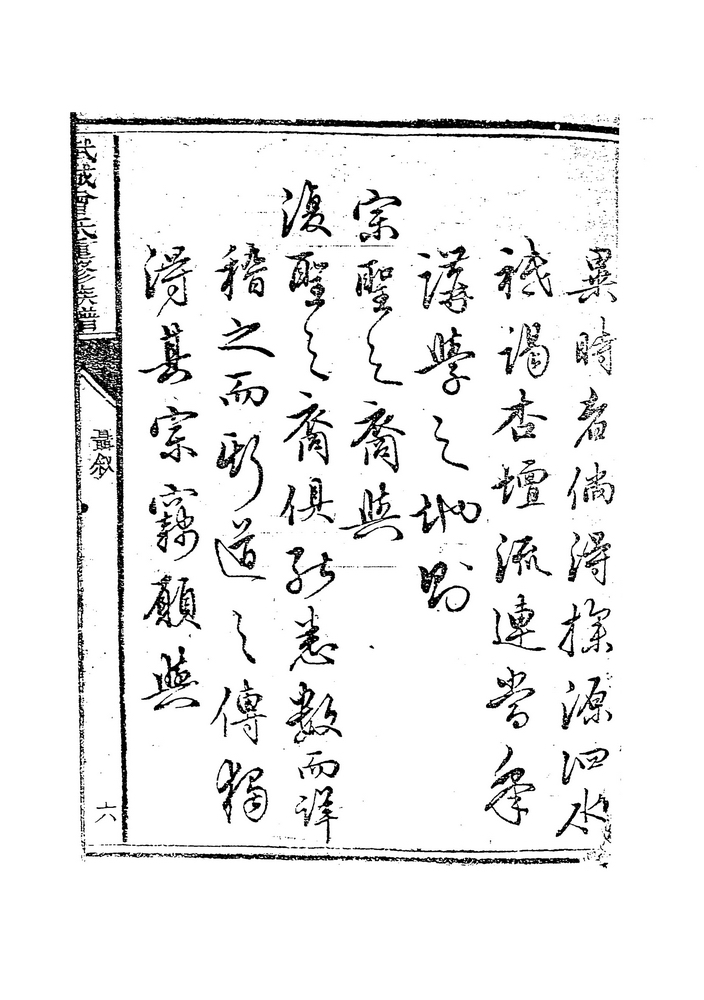 異時者倘得探源泗水
祗謁杏壇流連當年
講學之地則
宗聖之裔與
復聖之裔俱能悉數而詳
稽之而斯道之傳獨
得其宗竊願與
武城曾氏重修族譜
聶敘
六